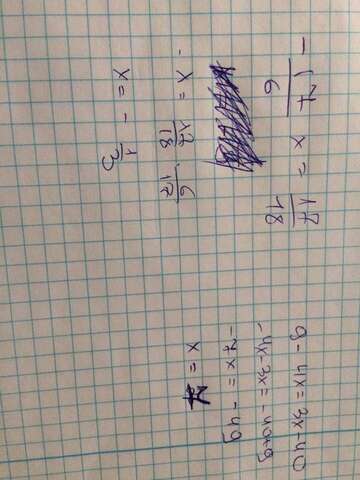 - 17/6 x = 17/18
- x = 17/18 · 6/17
x = - 1/3
9-4x=3x-40
-4x-3x=-40+9
-7x=-49
x=7